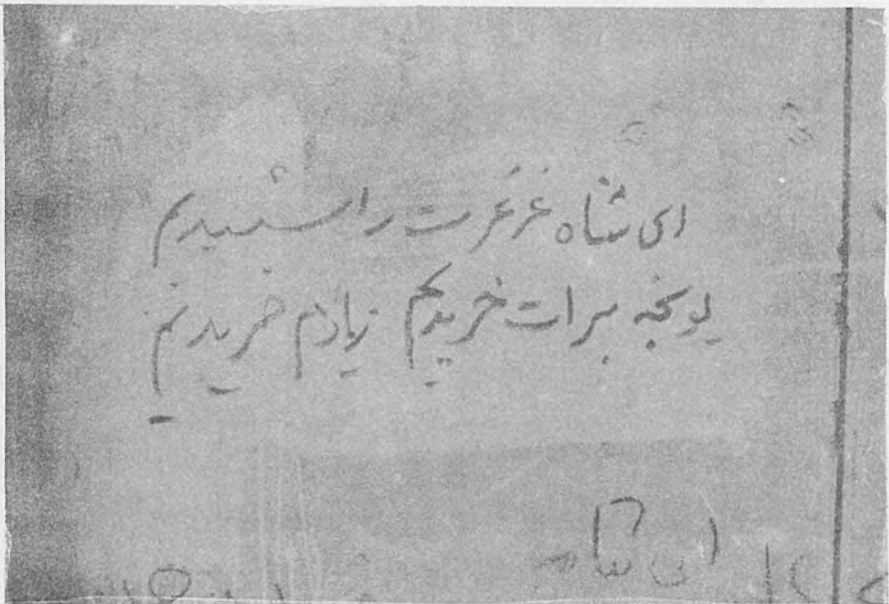 ای شاه عرعرت را شنیدیم
یونجه برات خریدیم زیادم خریدیم
ای شاه